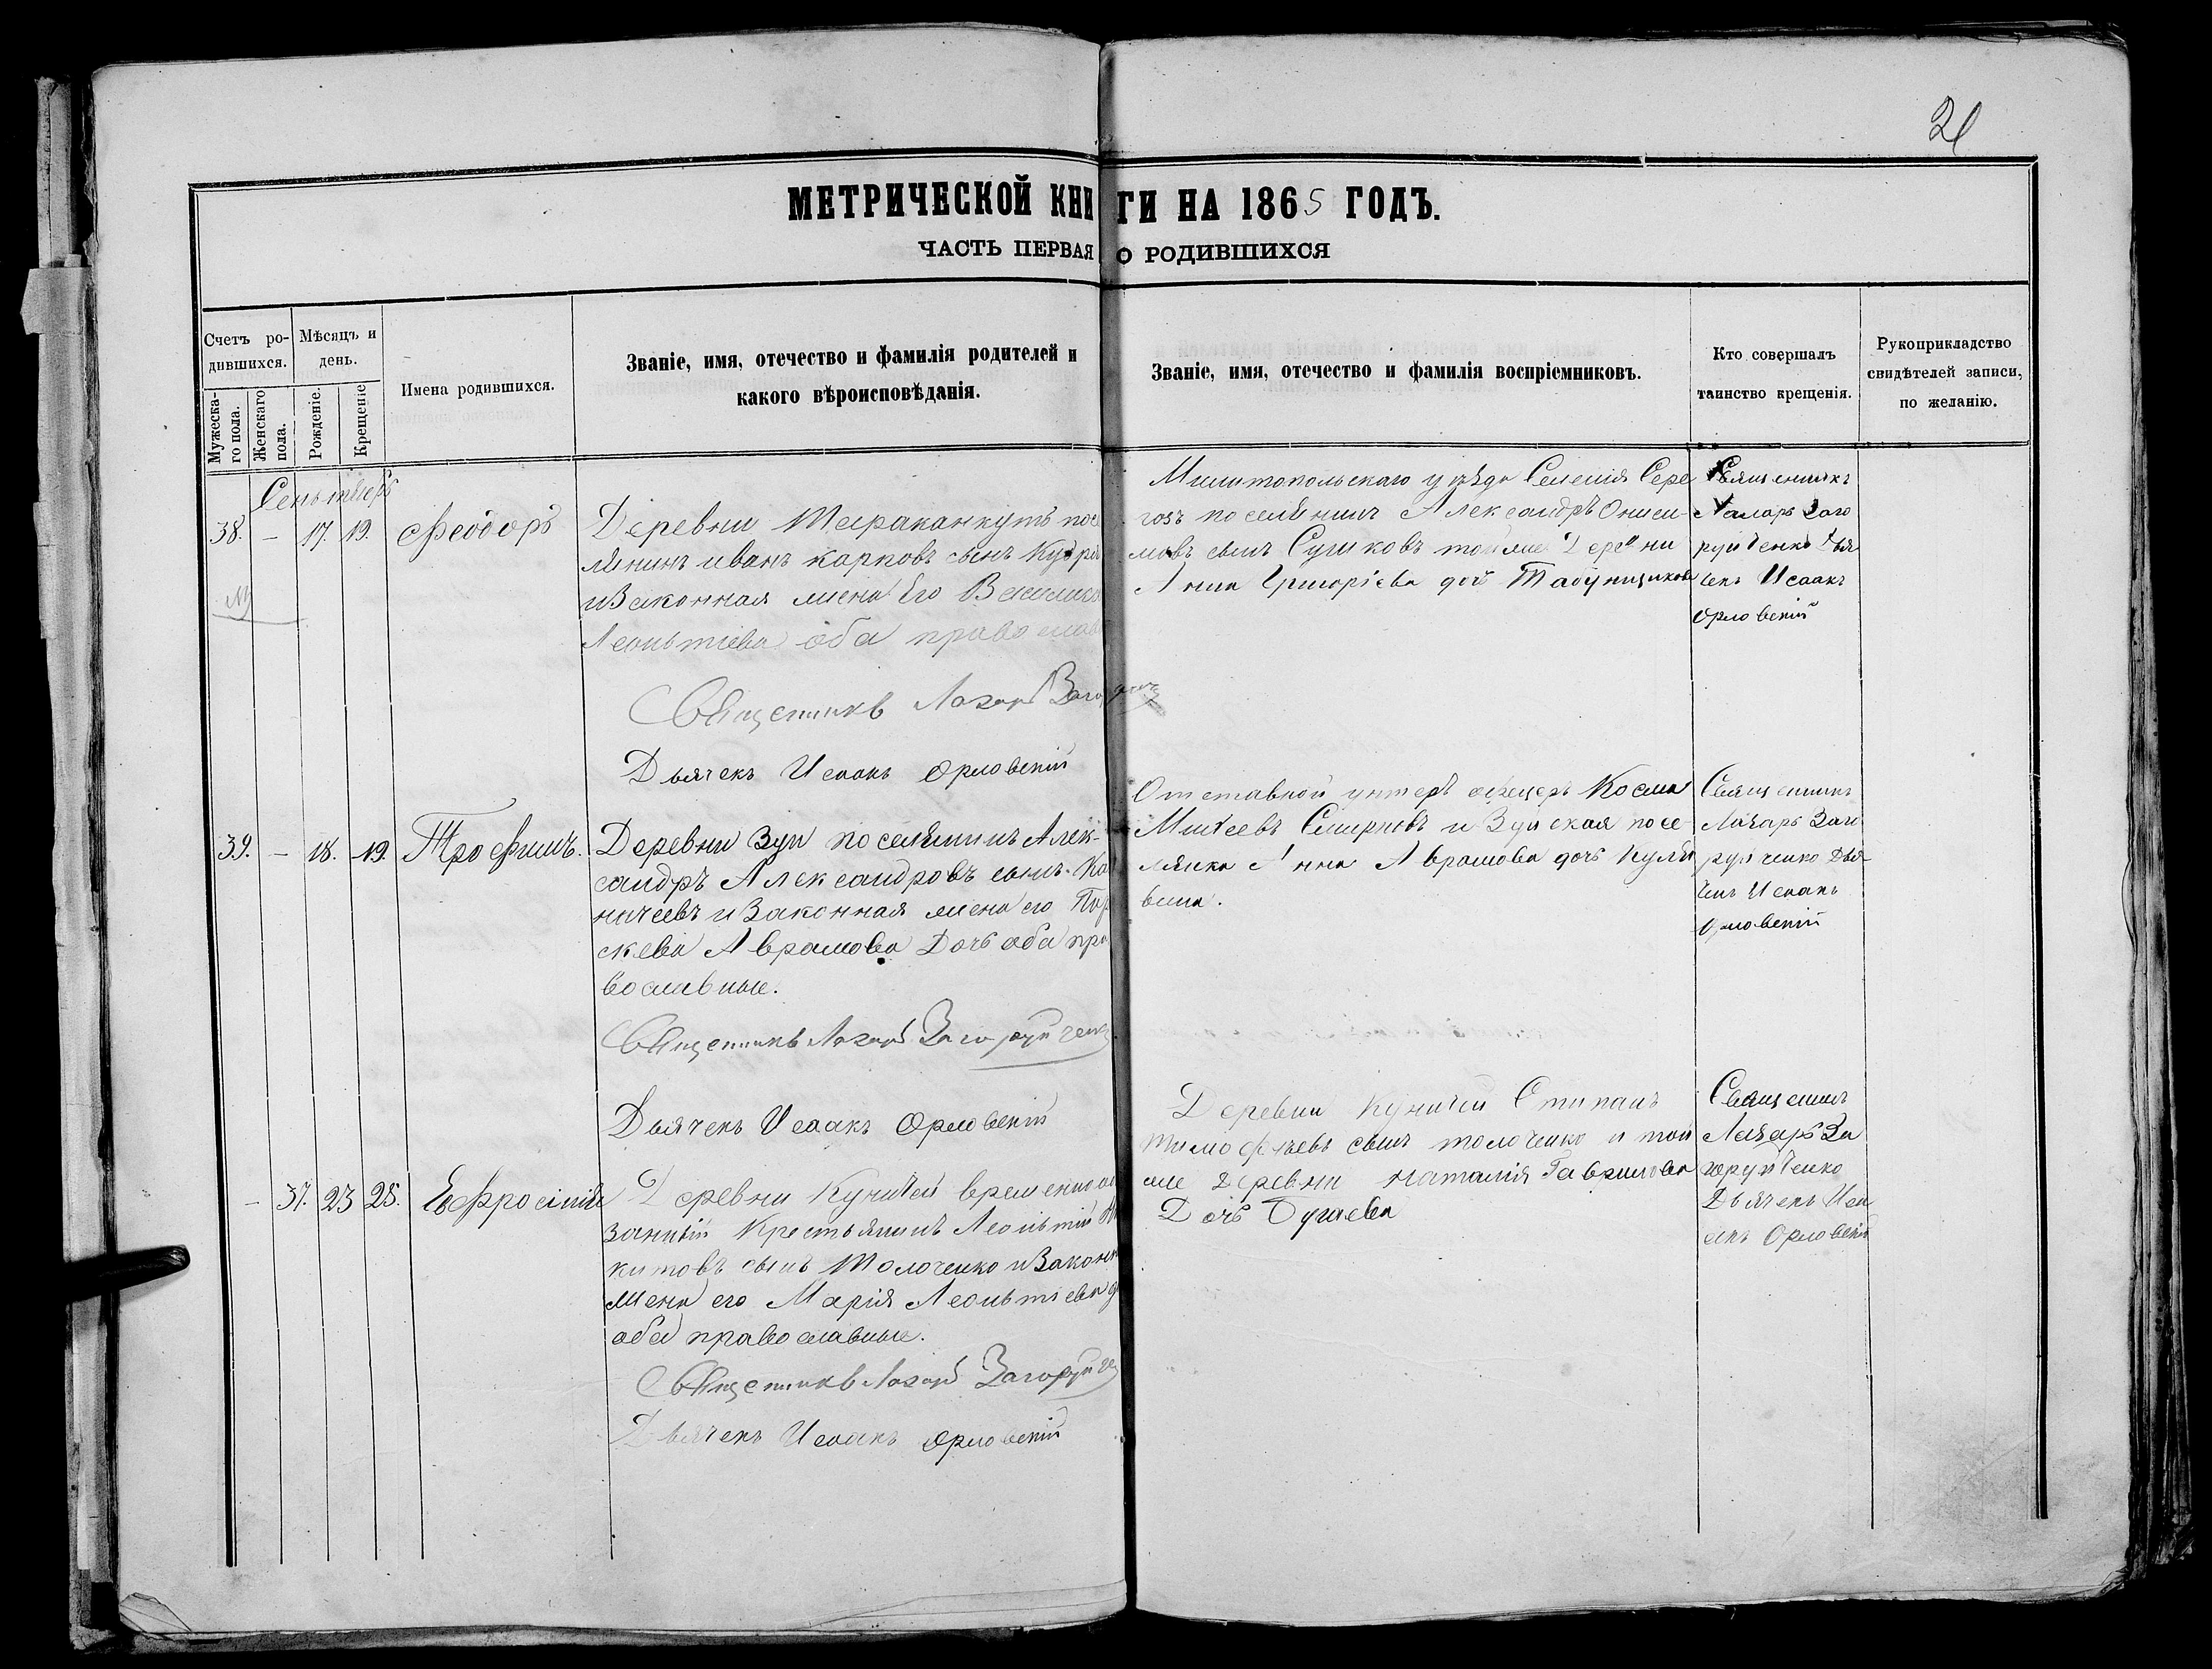 21
МЕТРИЧЕСКОЙ КНИГИ НА 1865 ГОДЪ.
ЧАСТЬ ПЕРВАЯ О РОДИВШИХСЯ
Счетъ ро-
дившихся.
Мужеска-
го пола.
Женскаго
пола.
Мѣсяцъ и
день.
Рожденіе.
Крещеніе
Имена родившихся.
Званіе, имя, отечество и фамилія родителей и
какого вѣроисповѣданія.
Званіе, имя, отечество и фамилія воспріемниковъ.
Кто совершалъ
таинство крещенія.
Рукоприкладство
свидѣтелей записи,
по желанію.
Сентябрь
38. — 17. 19. Феодоръ
Деревни Тараканкутъ посе
лянинъ иванъ карповъ сынъ
и Законная жена Его
Леонтіева оба православ
Священникъ Лазарь
Дьячекъ Исаакъ Орловскій
Милитопольскаго уѣзда Селенія Сере
гозъ поселянинъ Александръ Ониси-
мовъ сынъ Сушковъ тойже Деревни
Анна Григоріева дочь Табунщикова
Священникъ
Лазарь Заго
руйченко Дья
чекъ Исаакъ
Орловскій
39. — 18. 19. Трофимъ.
Деревни Зуи поселянинъ Алек-
сандръ Александровъ сынъ
ничеевъ и Законная жена его Пар
скева Аврамова Дочь оба пра
вославные.
Священникъ Лазарь Загоруйченко
Дьячекъ Исаакъ Орловскій
Отставной унтеръ офицеръ Косма
Смирновъ и Зуйская посе-
лянка Анна Аврамова дочь
вина.
Священникъ
Лазарь Заго
руйченко Дья-
чекъ Исаакъ
Орловскій
— 37. 23 25. Ефросинія
Деревни Куничей
занный Крестьянинъ Леонтій Ни
китовъ сынъ Толоченко и Законн
жена его Марія Леонтіева д
оба православные.
Священникъ Лазарь Загоруйче
Дьячекъ Исаакъ Орловскій
Деревни Куничей Стипанъ
тимофѣевъ сынъ толоченко и той
же деревни наталія Гаврилова
Дочь Бугаева
Священникъ
Лазарь За
горуйченко
Дьячекъ Иса
акъ Орловскій